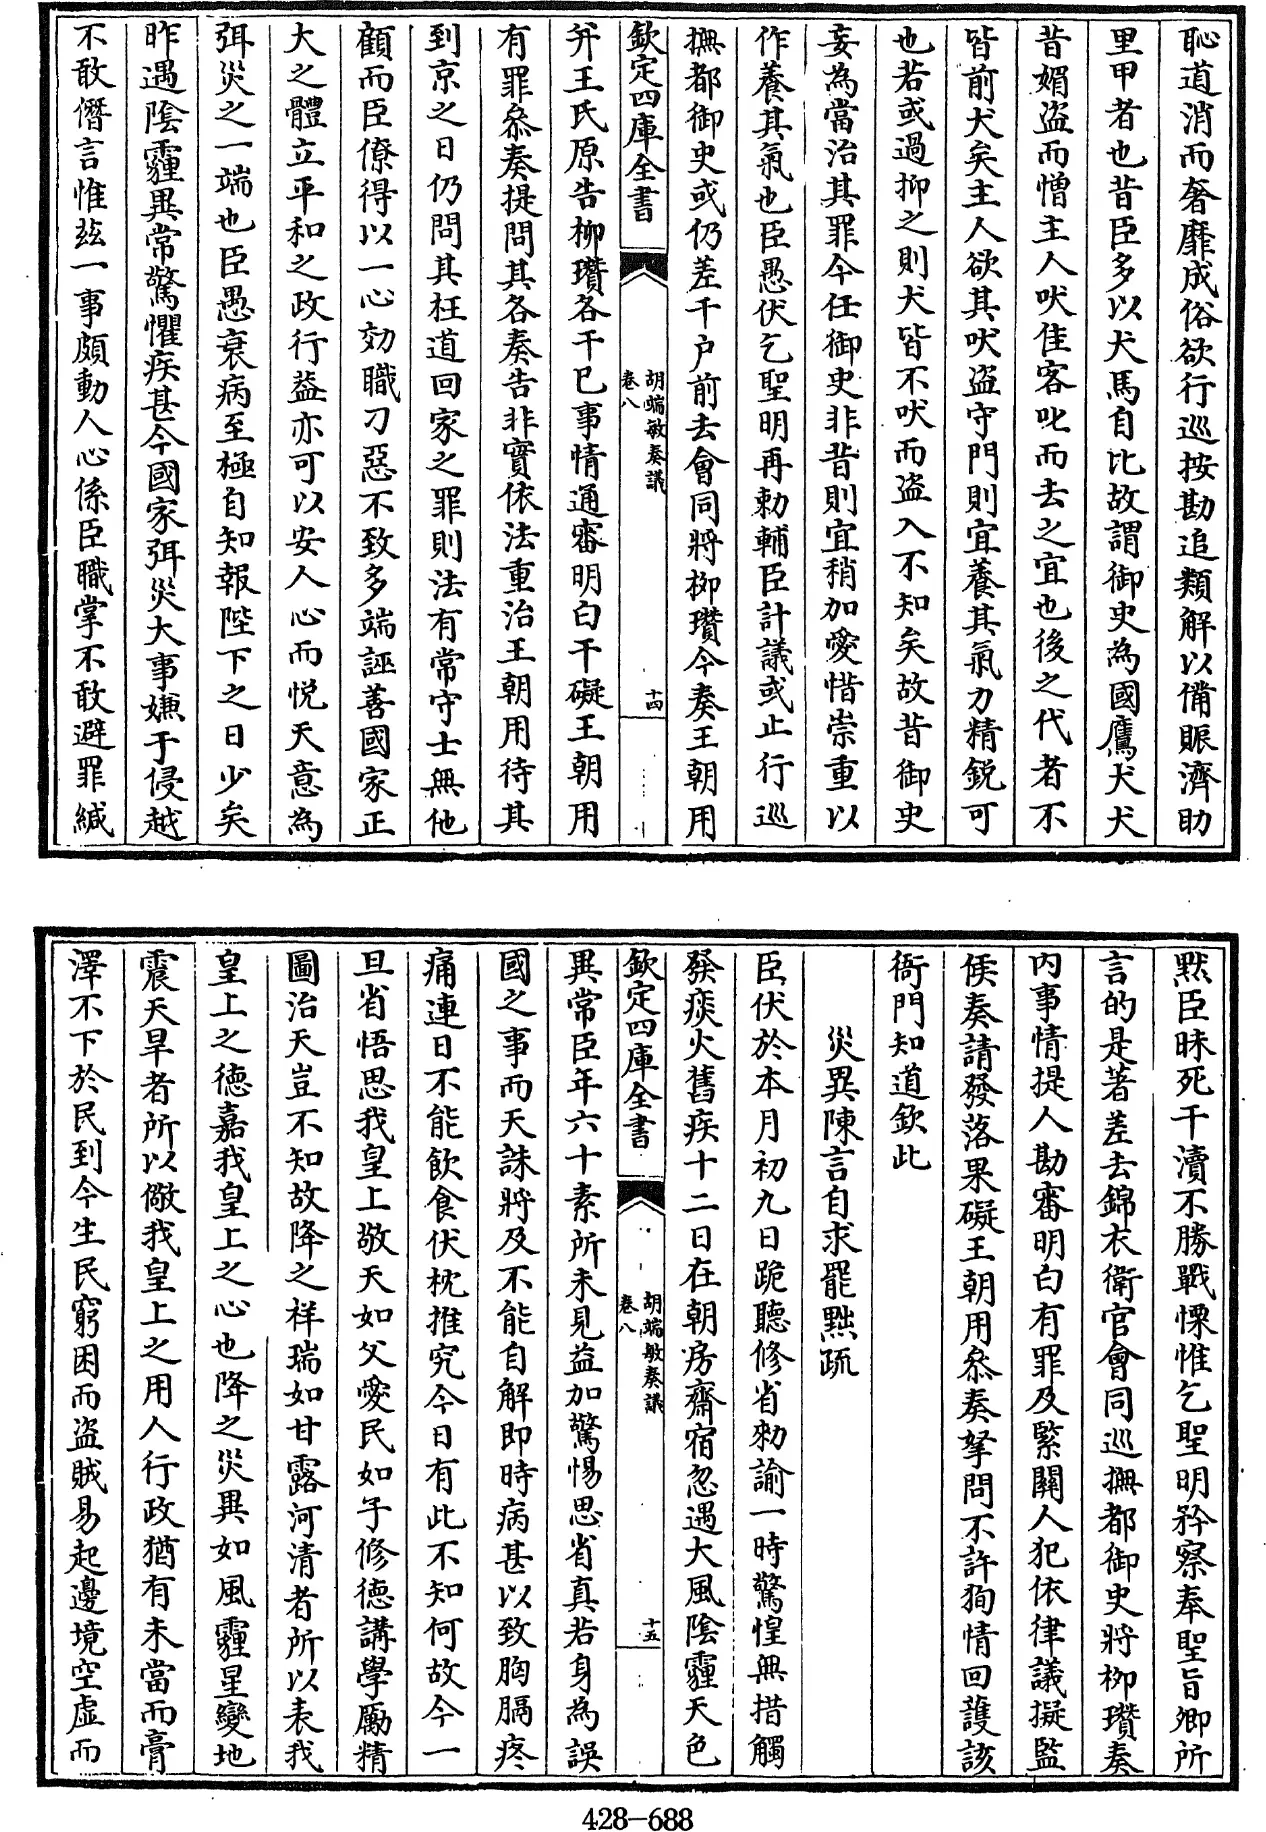 恥道消而奢靡成俗欲行巡按勘追類解以備賑濟助
里甲者也昔臣多以犬馬自比故謂御史為國鷹犬犬
昔媚盜而憎主人吠佳客叱而去之宜也後之代者不
皆前犬矣主人欲其吠盜守門則宜養其氣力精鋭可
也若或過抑之則犬皆不吠而盜入不知矣故昔御史
妄為當治其罪今任御史非昔則宜稍加愛惜崇重以
作養其氣也臣愚伏乞聖明再勅輔臣計議或止行巡
撫都御史或仍差千户前去會同將柳瓚今奏王朝用
欽定四庫全書
胡端敏奏議
卷八
十四
并王氏原告柳瓚各干已事情通審明白干礙王朝用
有罪叅奏提問其各奏告非實依法重治王朝用待其
到京之日仍問其枉道回家之罪則法有常守士無他
顧而臣僚得以一心効職刁惡不致多端誣善國家正
大之體立平和之政行益亦可以安人心而悦天意為
弭災之一端也臣愚衰病至極自知報陛下之日少矣
昨遇陰霾異常驚懼疾甚今國家弭災大事嫌于侵越
不敢僭言惟兹一事頗動人心係臣職掌不敢避罪緘
黙臣昧死干瀆不勝戰慄惟乞聖明矜察奉聖旨卿所
言的是著差去錦衣衛官會同巡撫都御史將柳瓚奏
内事情提人勘審明白有罪及緊關人犯依律議擬監
候奏請發落果礙王朝用叅奏拏問不許狥情回護該
衙門知道欽此
災異陳言自求罷黜疏
臣伏於本月初九日跪聽修省勅諭一時驚惶無措觸
發痰火舊疾十二日在朝房齋宿忽遇大風陰霾天色
欽定四庫全書
胡端敏奏議
卷八
十五
異常臣年六十素所未見益加驚惕思省真若身為誤
國之事而天誅將及不能自解即時病甚以致胸膈疼
痛連日不能飲食伏枕推究今日有此不知何故今一
旦省悟思我皇上敬天如父愛民如子修德講學勵精
圖治天豈不知故降之祥瑞如甘露河清者所以表我
皇上之德嘉我皇上之心也降之災異如風霾星變地
震天旱者所以儆我皇上之用人行政猶有未當而膏
澤不下於民到今生民窮困而盜賊易起邊境空虚而
428-688